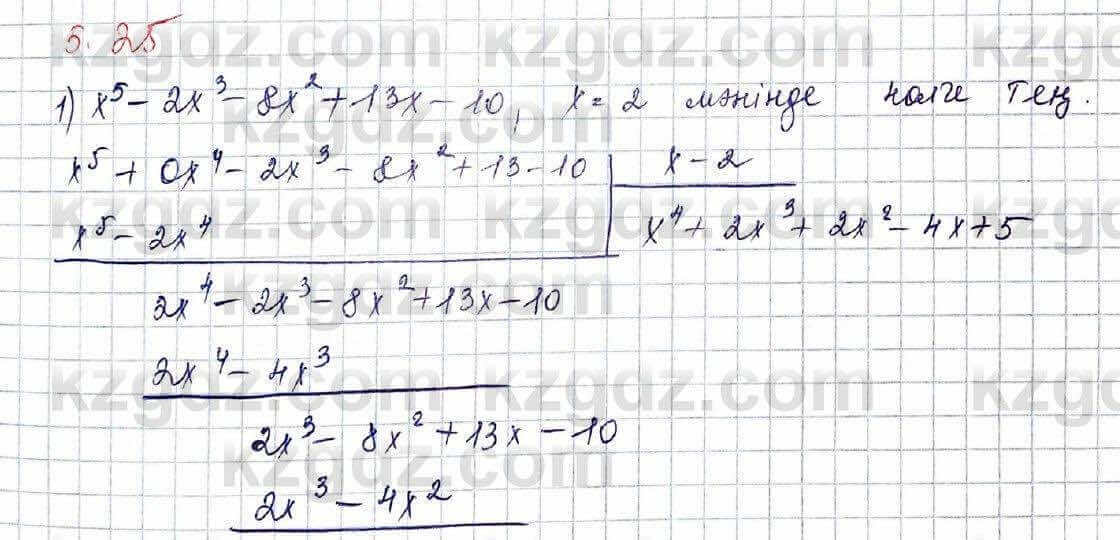 5.25
1) x⁵ - 2x³ - 8x² + 13x - 10, x = 2 мәнінде нөлге тең.
x⁵ + 0x⁴ - 2x³ - 8x² + 13 - 10 | x - 2
x⁵ - 2x⁴ | x⁴ + 2x³ + 2x² - 4x + 5
2x⁴ - 2x³ - 8x² + 13x - 10
2x⁴ - 4x³
2x³ - 8x² + 13x - 10
2x³ - 4x²
kzgdz.com